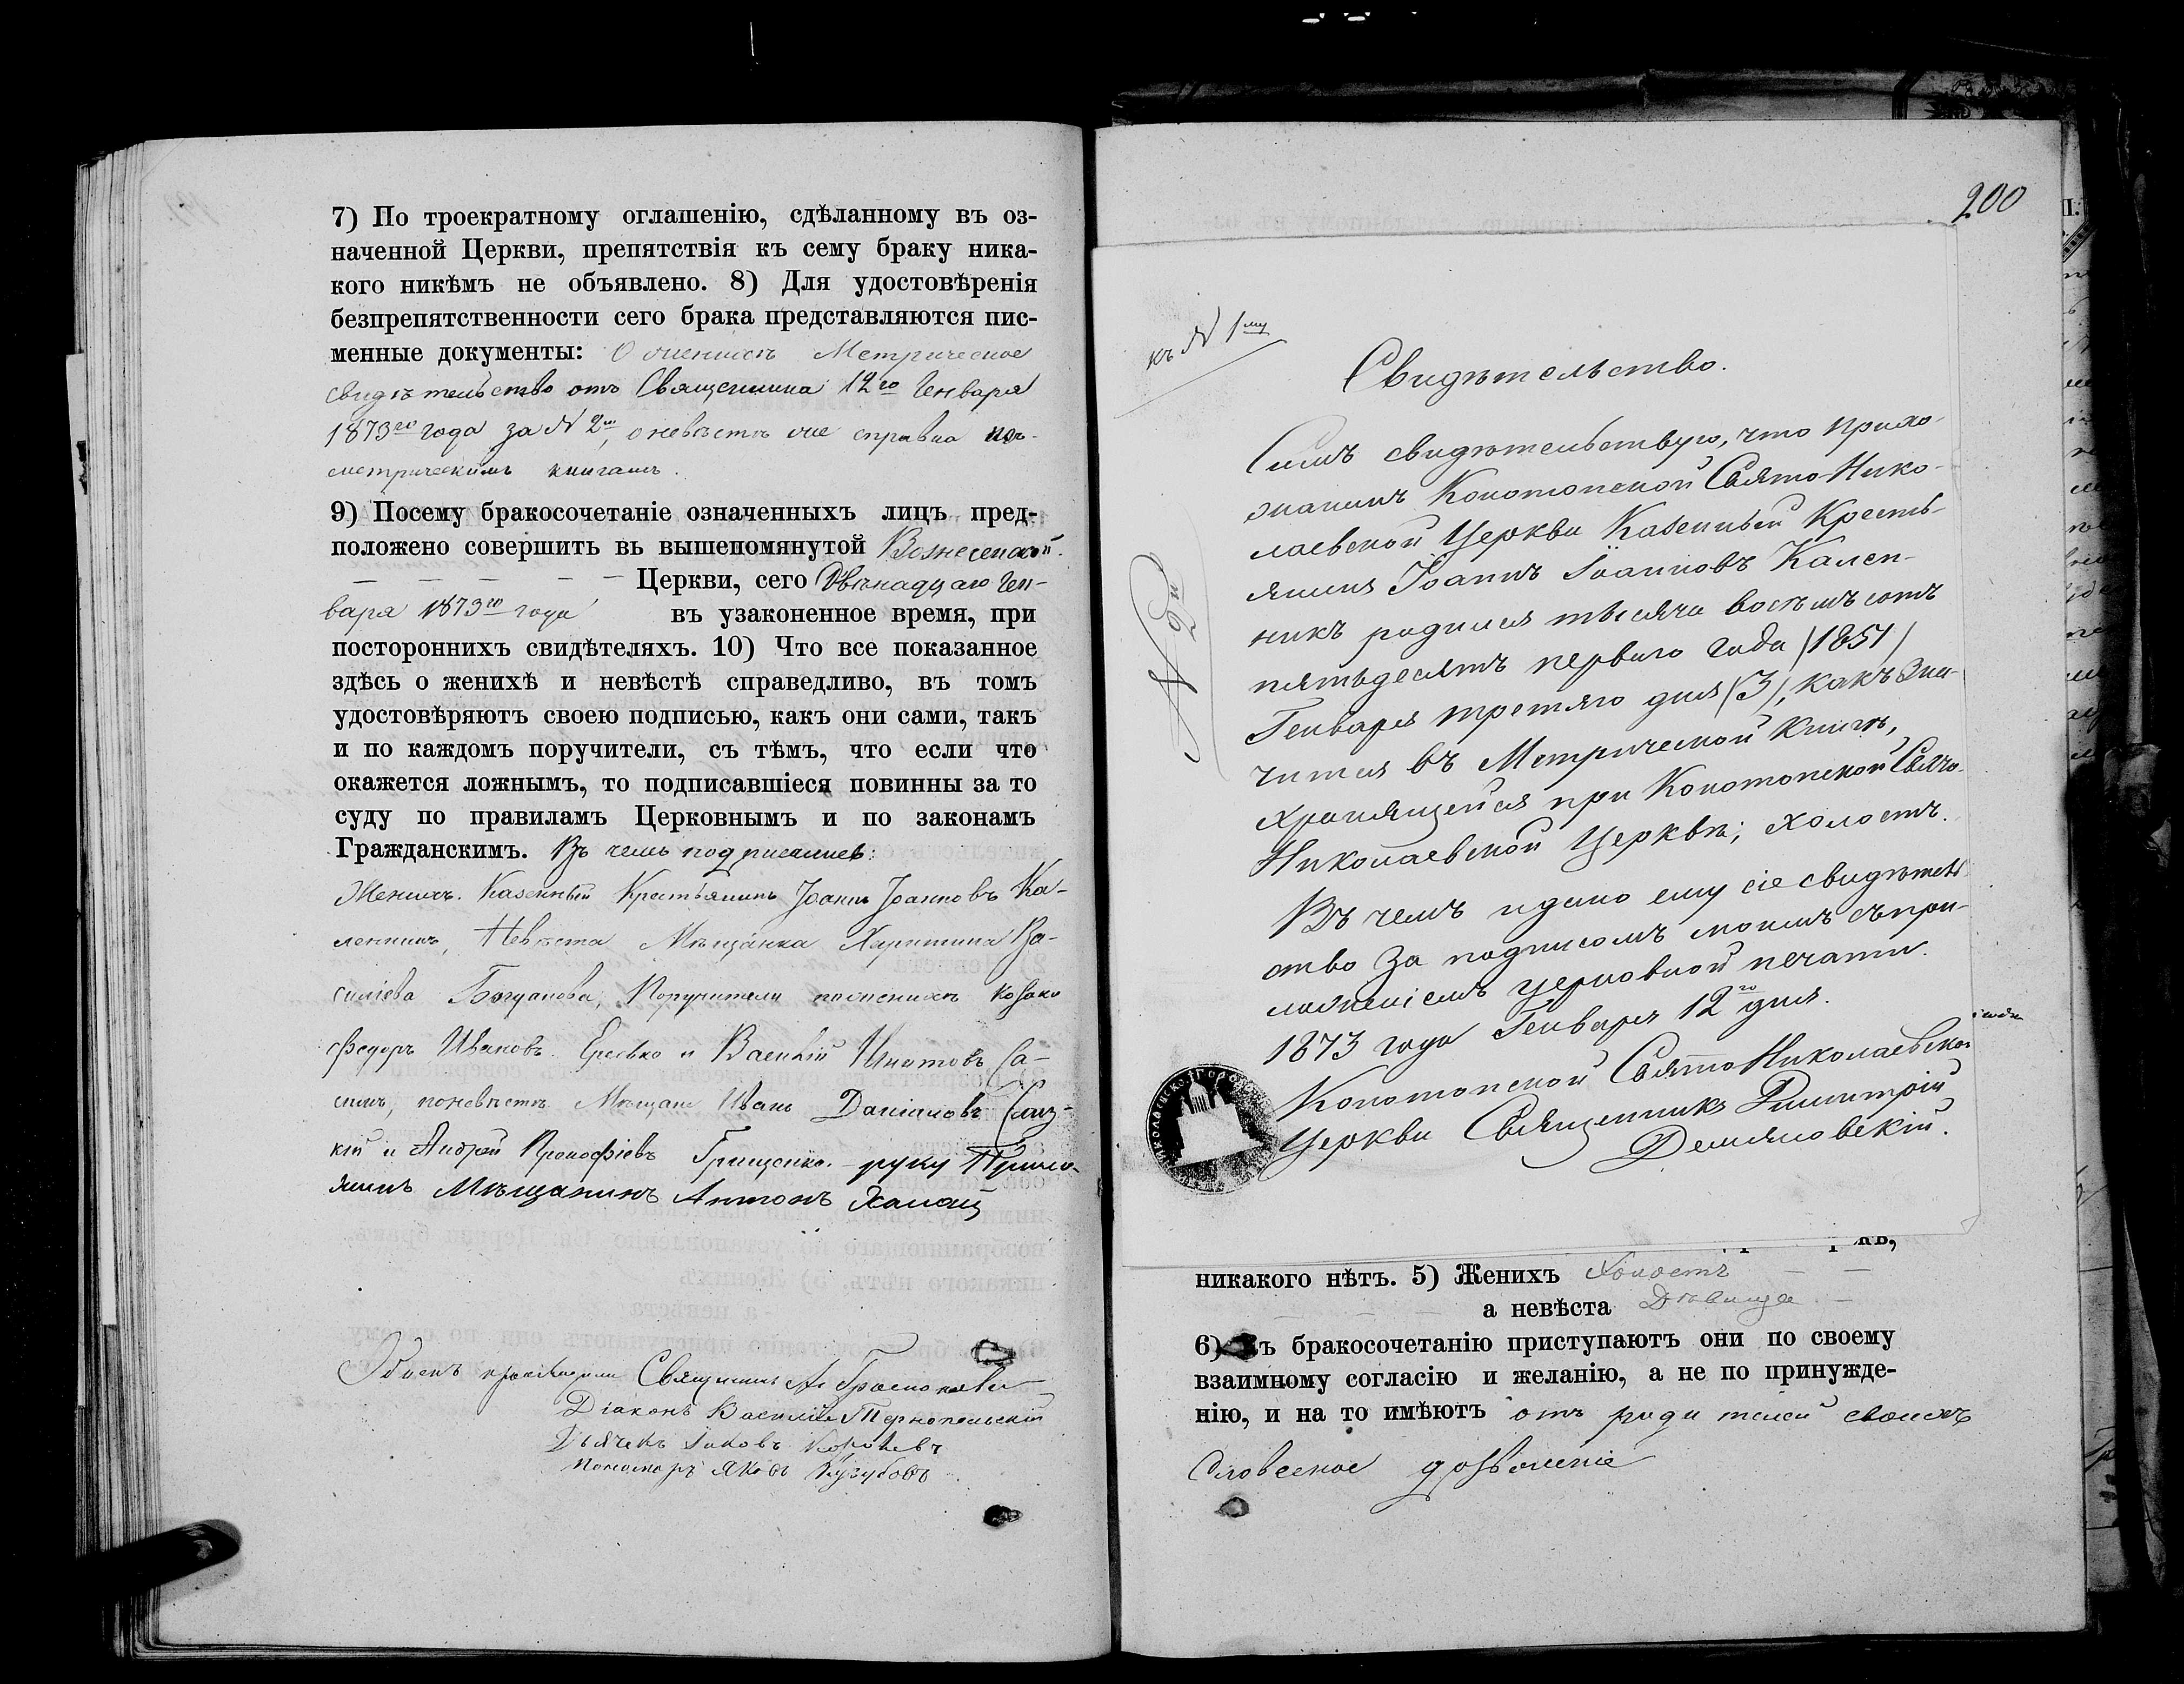 7) По троекратному оглашенію, сдѣланному въ оз-
наченной Церкви, препятствія къ сему браку ника-
кого никѣмъ не объявлено. 8) Для удостовѣренія
безпрепятственности сего брака представляются пис-
менные документы: О женихѣ Метрическое
свидѣтельство отъ Священника 12го Генваря
1873го года за N 2м, о невѣстѣ справка по
метрическимъ книгамъ.
9) Посему бракосочетаніе означенныхъ лицъ пред-
положено совершить вь вышепомянутой Вознесенской
Церкви, сего Двѣнадцаго Ген-
варя 1873го года въ узаконенное время, при
постороннихъ свидѣтеляхъ. 10) Что все показанное
здѣсь о женихѣ и невѣстѣ справедливо, въ томъ
удостовѣряютъ своею подписью, какъ они сами, такъ
и по каждомъ поручители, съ тѣмъ, что если что
окажется ложнымъ, то подписавшіеся повинны за то
суду по правиламъ Церковнымъ и по законамъ
Гражданскимъ. Въ чемъ подписались:
Женихъ. Казенный Крестьянинъ Іоаннъ Іоанновъ Ка-
ленникъ, Невѣста Мѣщанка Харитина Ва-
силіева Богданова, Поручители по женихѣ Козаки
Федоръ Ивановъ и Василій Игнатовъ Са-
по невѣстѣ Мѣщане Иванъ Даніиловъ
кій и Андрей Прокофіевъ Грищенко. руку
Мѣщанинъ Антонъ
Обыскъ производили Священникъ
Діаконъ Василій Тернопольскій
Дьячекъ Іаковъ
Пономарь Яковъ Кузубовъ
200
къ N 1му
N 2й
Свидѣтельство.
Симъ свидѣтельствую, что прихо-
жанинъ Конотопской Свято Нико-
лаевской Церкви Казенный Кресть-
янинъ Іоаннъ Іоанновъ Кален-
никъ родился тысяча восемъ сотъ
пятьдесятъ перваго года /1851/
Генваря третяго дня /3/, какъ зна-
чится въ Метрической Книгѣ,
хранящейся при Конотопской Свято
Николаевской Церквѣ; холостъ.
Въ чемъ и дано ему сіе свидѣтель
ство за подписомъ моимъ съ при-
ложеніемъ церковной печати.
1873 года Генваря 12го дня.
Конотопской Свято Николаевской
Церкви Священникъ Димитрій
Демяновскій.
никакого нѣтъ. 5) Женихъ Холостъ
а невѣста Дѣвица
6) Къ бракосочетанію приступаютъ они по своему
взаимному согласію и желанію, а не по принужде-
нію, и на то имѣютъ отъ родителей своихъ
Словесное дозволеніе